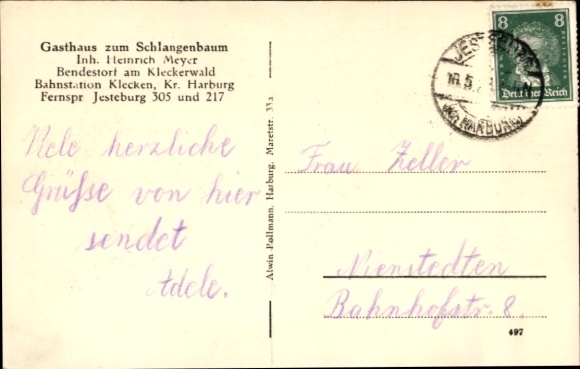 Gasthaus zum Schlangenbaum
Inh. Heinrich Meyer
Bendestorf am Kleckerwald
Bahnstation Klecken, Kr. Harburg
Fernspr Jesteburg 305 und 217
Viele herzliche
Grüße von hier
sendet
Adele.
Alwin Pollmann, Harburg, Maretstr. 33a
8 8
Deutsches Reich
10.5.
HARBURG
Frau Zeller
Nienstedten
Bahnhofstr. 8.
497